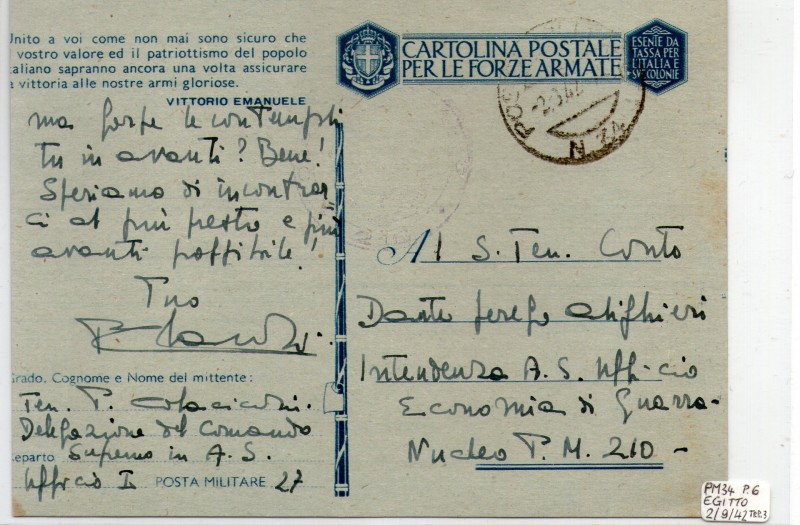 Unito a voi come non mai sono sicuro che
vostro valore ed il patriottismo del popolo
italiano sapranno ancora una volta assicurare
vittoria alle nostre armi gloriose.
VITTORIO EMANUELE
ma forse le contempli
tu in avanti? Bene!
Speriamo di incontrar
ci al più presto e più
avanti possibile!
Tuo
Grado, Cognome e Nome del mittente:
Ten. P.
Delegazione del Comando
Reparto Supremo in A. S.
Ufficio I POSTA MILITARE 27
CARTOLINA POSTALE
PER LE FORZE ARMATE
ESENTE DA
TASSA PER
L'ITALIA E
SVE COLONIE
N. 34
Al S. Ten. Conte
Dante Serego Alighieri
Intendenza A. S. Ufficio
Economia di Guerra -
Nucleo P. M. 210 -
PM34 P.6
EGITTO
2/9/42 TEP.3